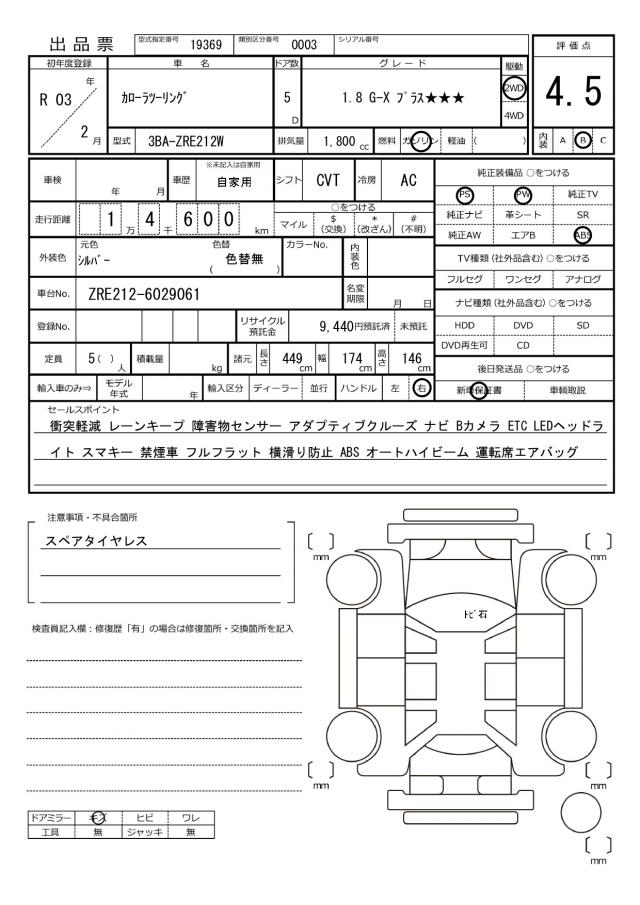 出品票 型式指定番号 19369 類別区分番号 0003 シリアル番号
評価点
4.5
初年度登録 車名 ドア数 グレード 駆動
R 03 年 2 月
カローラツーリング 5 D 1.8 G-X プラス★★★ 2WD
4WD
型式 3BA-ZRE212W 排気量 1,800 cc 燃料 ガソリン 軽油 ( )
内装 A B C
車検 年 月 車歴 ※未記入は自家用 自家用 シフト CVT 冷房 AC
走行距離 1 万 4 千 600 km
○をつける
マイル $(交換) *(改ざん) #(不明)
外装色 元色 シルバー 色替 ( 色替無 ) カラーNo. 内装色
車台No. ZRE212-6029061 名変期限 月 日
登録No. リサイクル預託金 9,440円預託済 未預託
定員 5( )人 積載量 kg 諸元 長さ 449 cm 幅 174 cm 高さ 146 cm
輸入車のみ⇒ モデル年式 年 輸入区分 ディーラー 並行 ハンドル 左 右
純正装備品 ○をつける
PS PW 純正TV
純正ナビ 革シート SR
純正AW エアB ABS
TV種類 (社外品含む) ○をつける
フルセグ ワンセグ アナログ
ナビ種類 (社外品含む) ○をつける
HDD DVD SD
DVD再生可 CD
後日発送品 ○をつける
新車保証書 車輌取説
セールスポイント
衝突軽減 レーンキープ 障害物センサー アダプティブクルーズ ナビ Bカメラ ETC LEDヘッドラ
イト スマキー 禁煙車 フルフラット 横滑り防止 ABS オートハイビーム 運転席エアバッグ
注意事項・不具合箇所
スペアタイヤレス
検査員記入欄：修復歴「有」の場合は修復箇所・交換箇所を記入
ドアミラー キズ ヒビ ワレ
工具 無 ジャッキ 無
〔 〕mm
〔 〕mm
トビ石
〔 〕mm
〔 〕mm
〔 〕mm